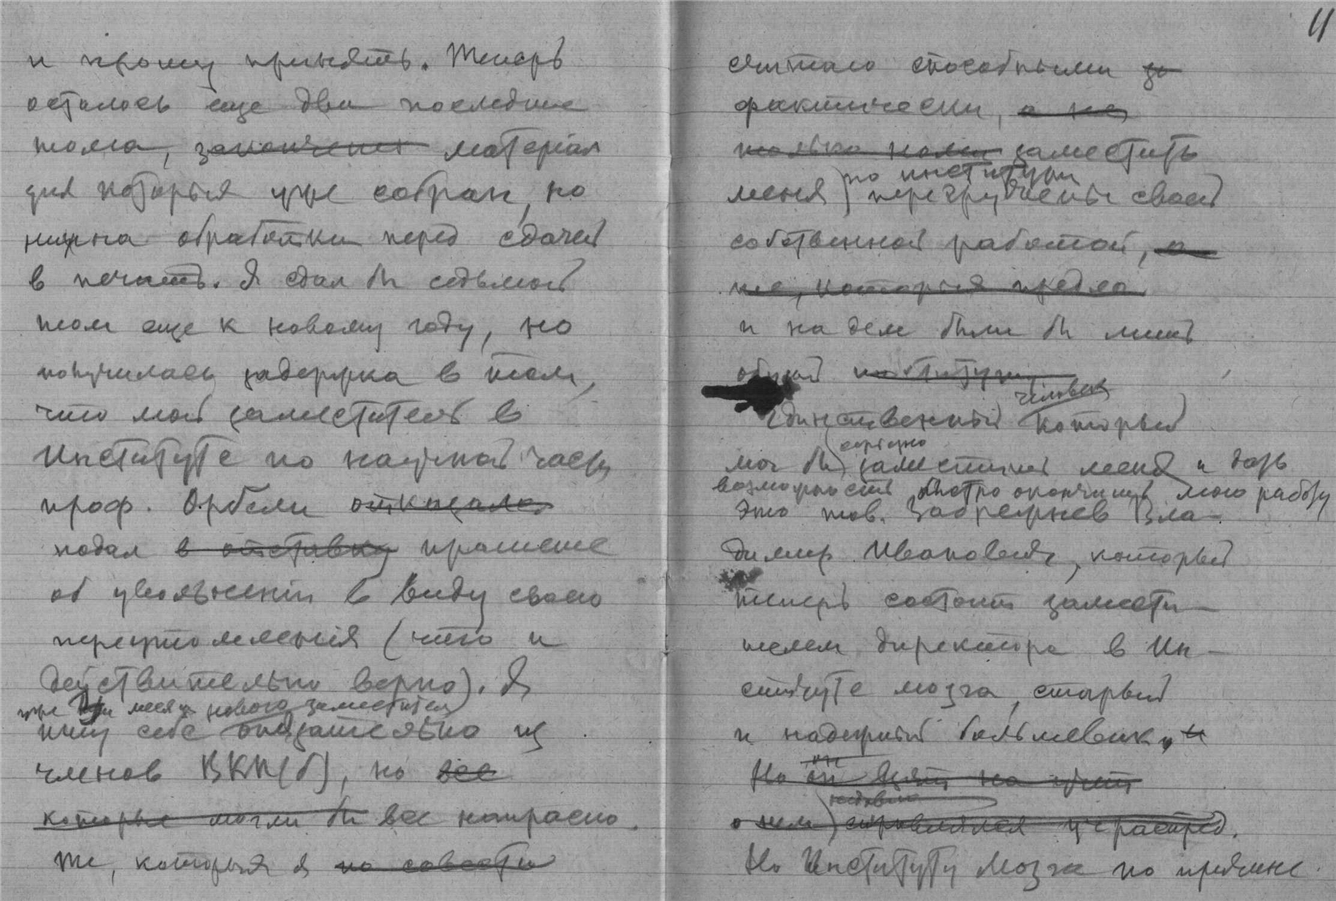 и прошу принять. Теперь
осталось еще два последние
тома, законченные материал
для которых уже собран, но
нужна обработка перед сдачей
в печать. Я сдал бы седьмой
том еще к новому году, но
получилась задержка в том,
что мой заместитель в
Институте по научной части
проф. Орбели отказался
подал в отставку прошение
об увольнении в виду своего
переутомления (что и
действительно верно). Я
уже три месяца нового заместителя
ищу себе обязательно из
членов ВКП(б), но все
которые могли бы все напрасно.
Те, которых я по совести
11
считаю способными за
фактически, а не
только номи заместить
по институту
меня, перегружены своей
собственной работой, а
те, которых предла
и на деле были бы лишь
обузой институту
человек
Единственный который
серьезно
мог бы заместить меня и дать
возможность быстро окончить мою работу
Это тов. Забрежнев Вла-
димир Иванович, который
теперь состоит замести-
телем директора в Ин-
ституте мозга, старый
и надежный большевик, и
Но он взят на учет
недавно
о нем справлялся Учраспред.
Но Институту Мозга по причине